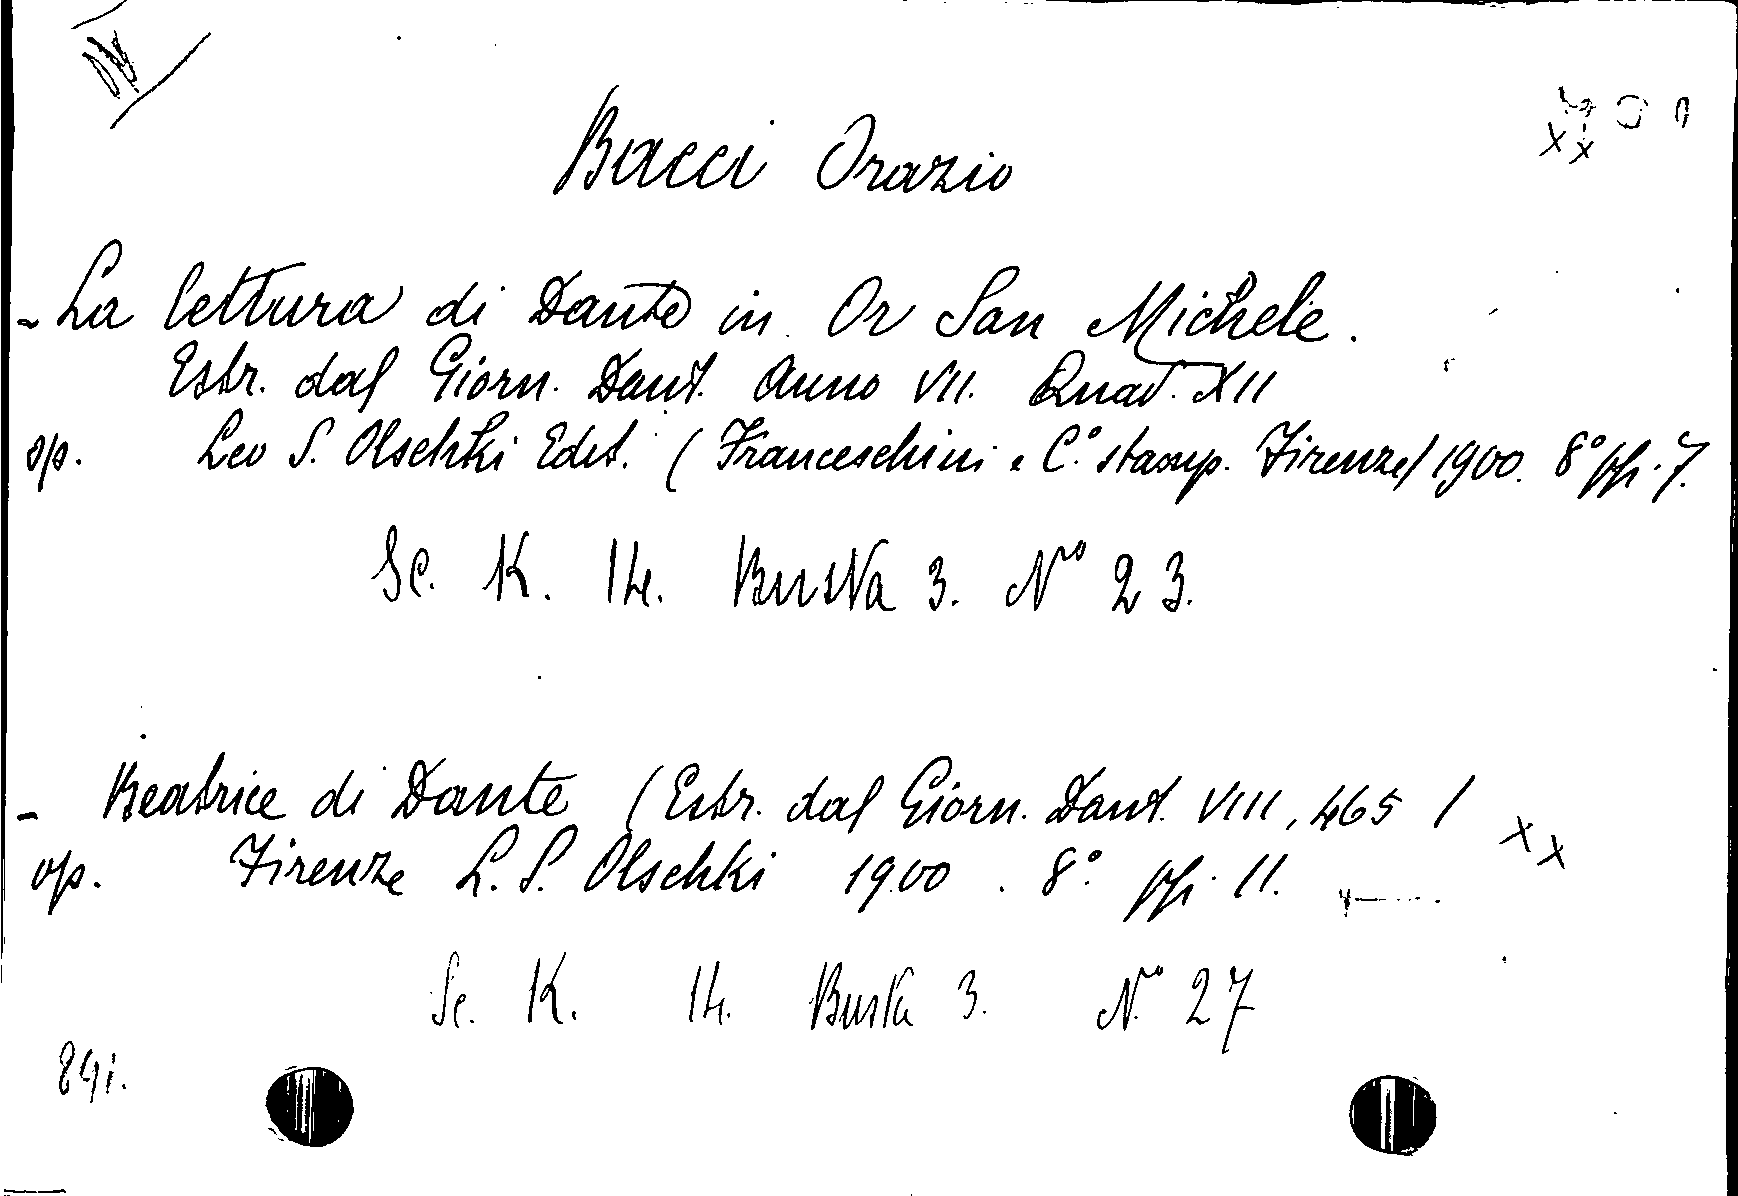 Bacci Orazio
- La lettura di Dante in Or San Michele.
Estr. dal Giorn. Dant. Anno VII. Quad. XII
op. Leo S. Olschki Edit. (Franceschini e C.° stamp. Firenze) 1900. 8° pp. 7.
Sc. K. 14. Busta 3. N° 23.
- Beatrice di Dante (Estr. dal Giorn. Dant. VIII, 465 /
xx
op. Firenze L. S. Olschki 1900. 8° pp. 11.
Sc. K. 14. Busta 3. N° 27
891.